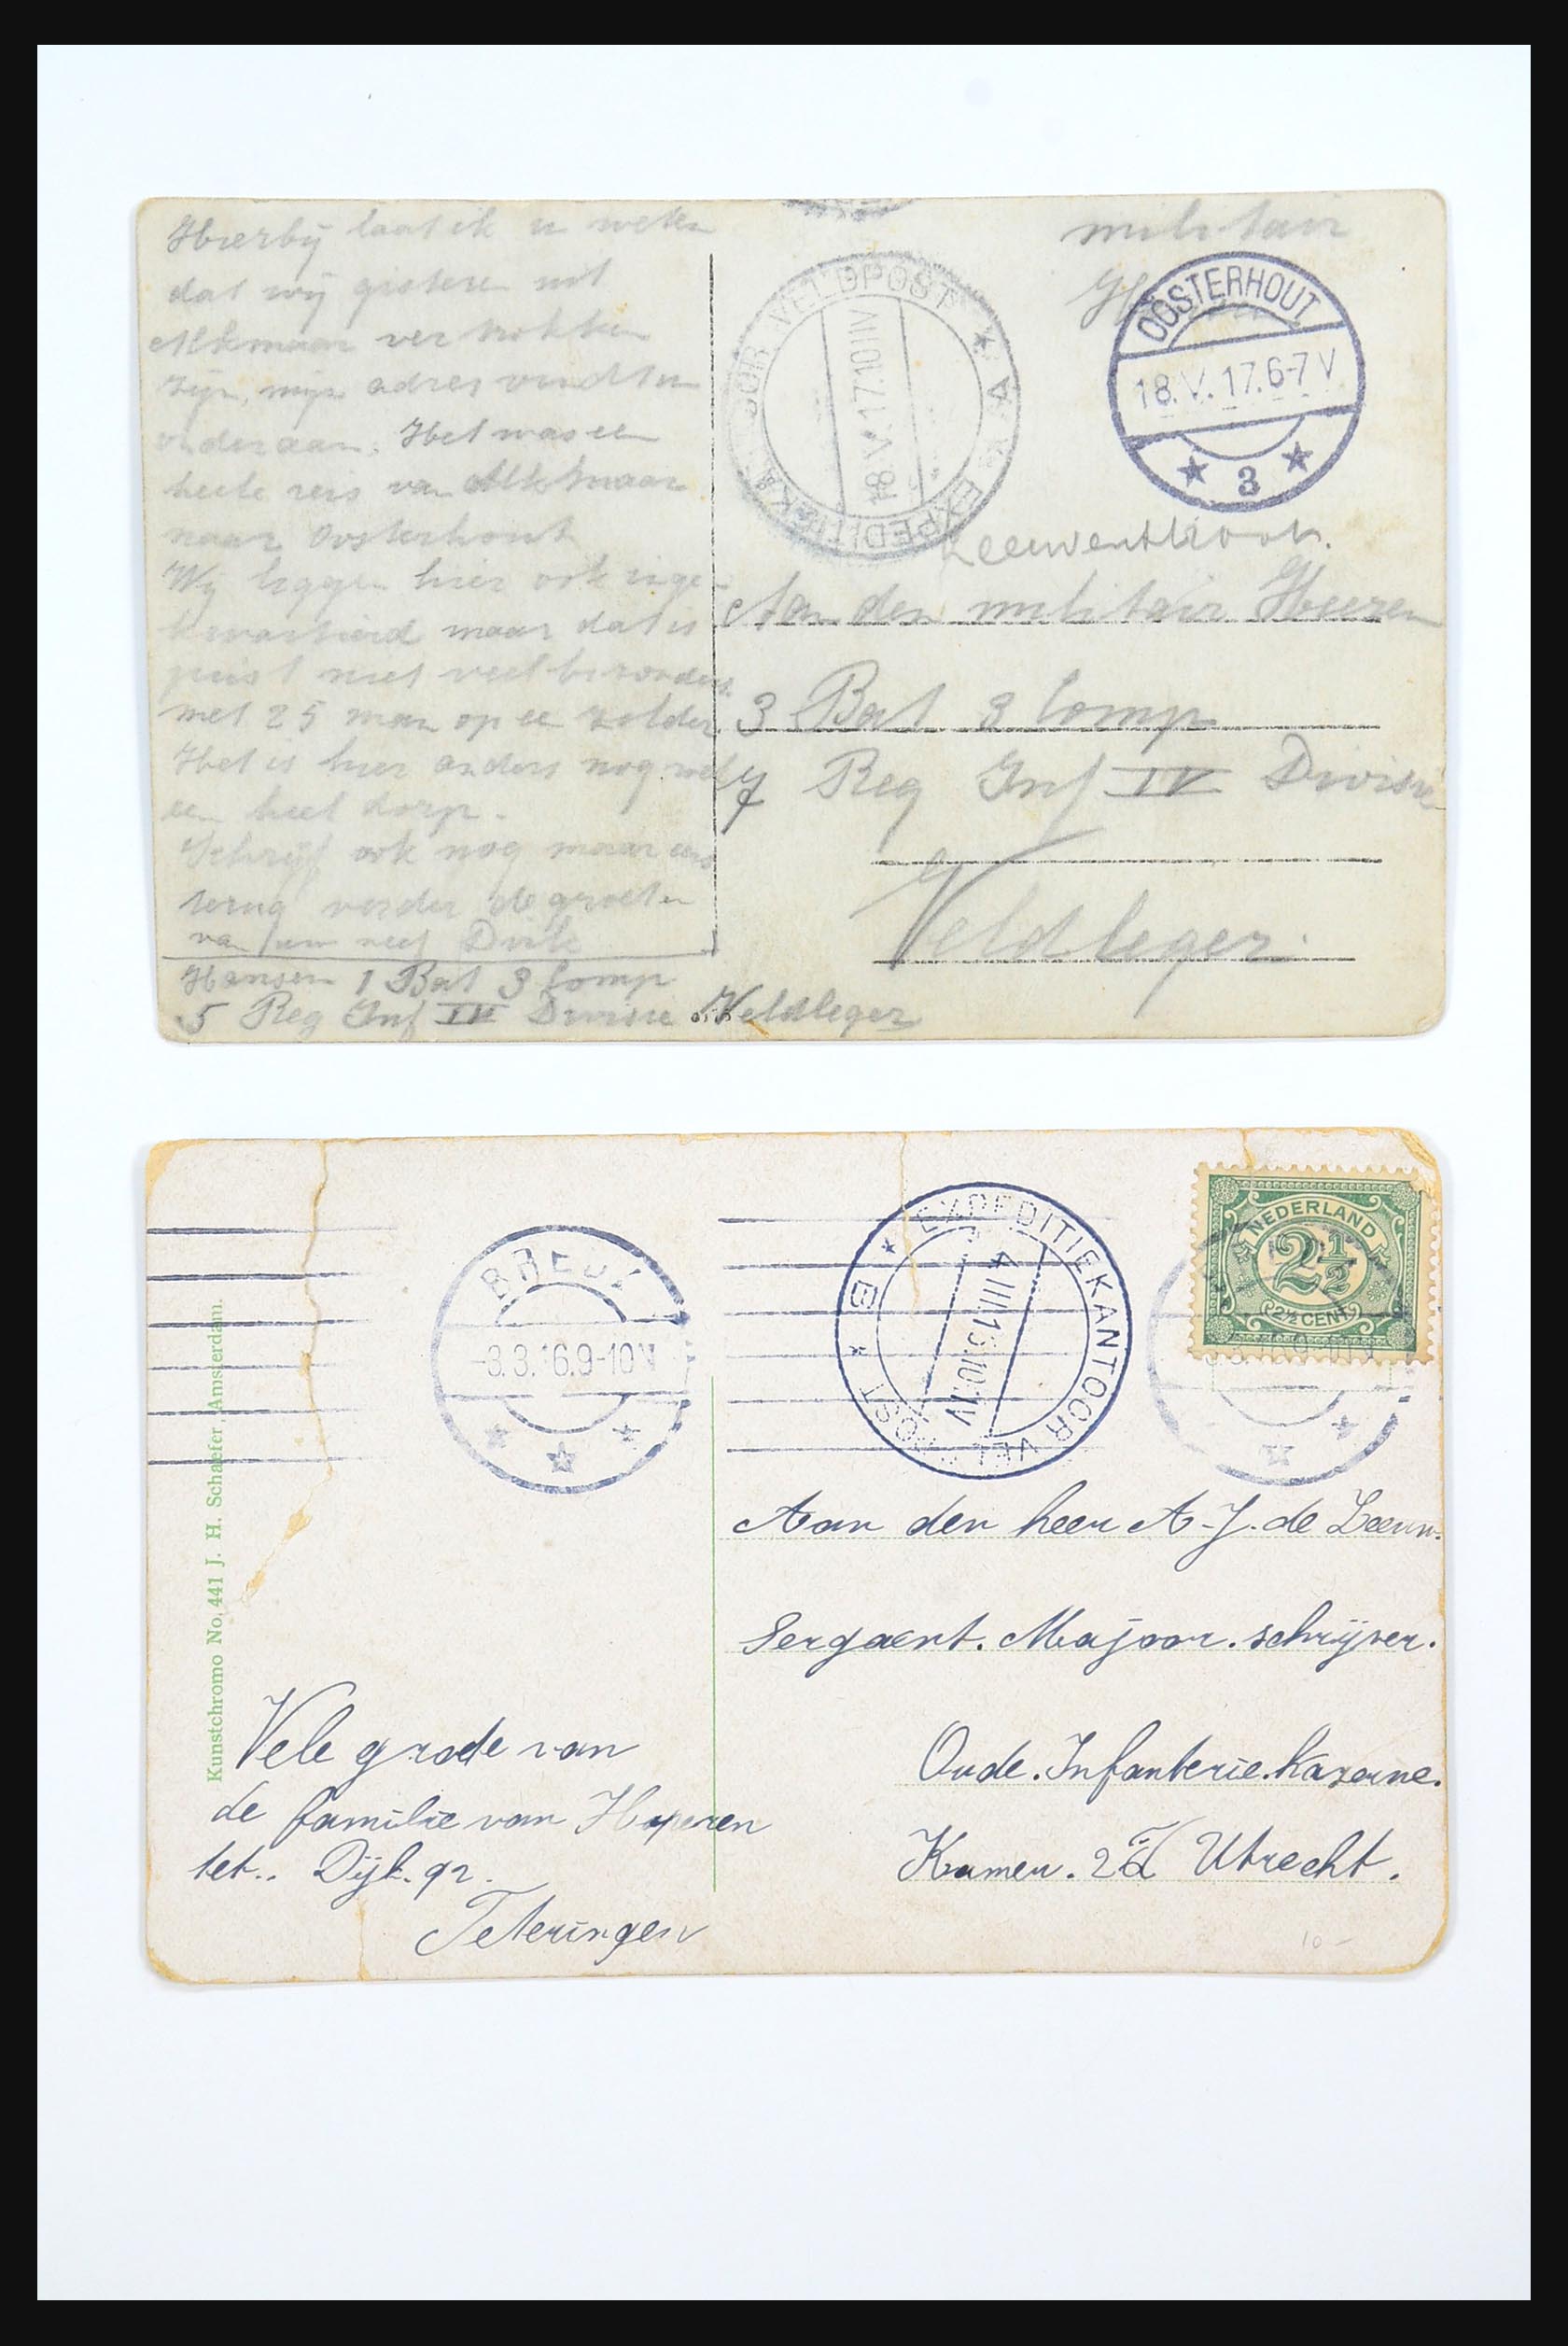 Hierbij laat ik u weten
dat wij gisteren uit
Alkmaar vertrokken
zijn, mijn adres vindt u
onderaan. Het was een
heele reis van Alkmaar
naar Oosterhout
Wij liggen hier ook inge-
kwartierd maar dat is
juist niet veel bizonders
met 25 man op ee zolder
Het is hier anders nog wel
een heel dorp.
Schrijf ook nog maar eens
terug verder de groeten
van uw neef Dirk
Hansen 1 Bat 3 Comp
5 Reg Inf IV Divisie Veldleger
militair
OOSTERHOUT
18.V.17.6-7V
3
VELDPOST
EXPEDITIEKANTOOR
18.V.17.10-11V
Aan den militair Heeren
3 Bat 3 Comp
7 Reg Inf IV Divisie
Veldleger
BREDA
-3.3.16.9-10V
EXPEDITIEKANTOOR VELDPOST
B
4 III 16 10-11V
NEDERLAND
2½
2½ CENT
Kunstchromo No. 441 J. H. Schaefer Amsterdam.
Aan den heer A.J. de Leeuw.
Sergaent. Majoor. schrijver.
Oude. Infanterie. Kazerne.
Kamer. 26 Utrecht.
Vele groete van
de familie van Haperen
tet.. Dijk. 92.
Teteringen
10-